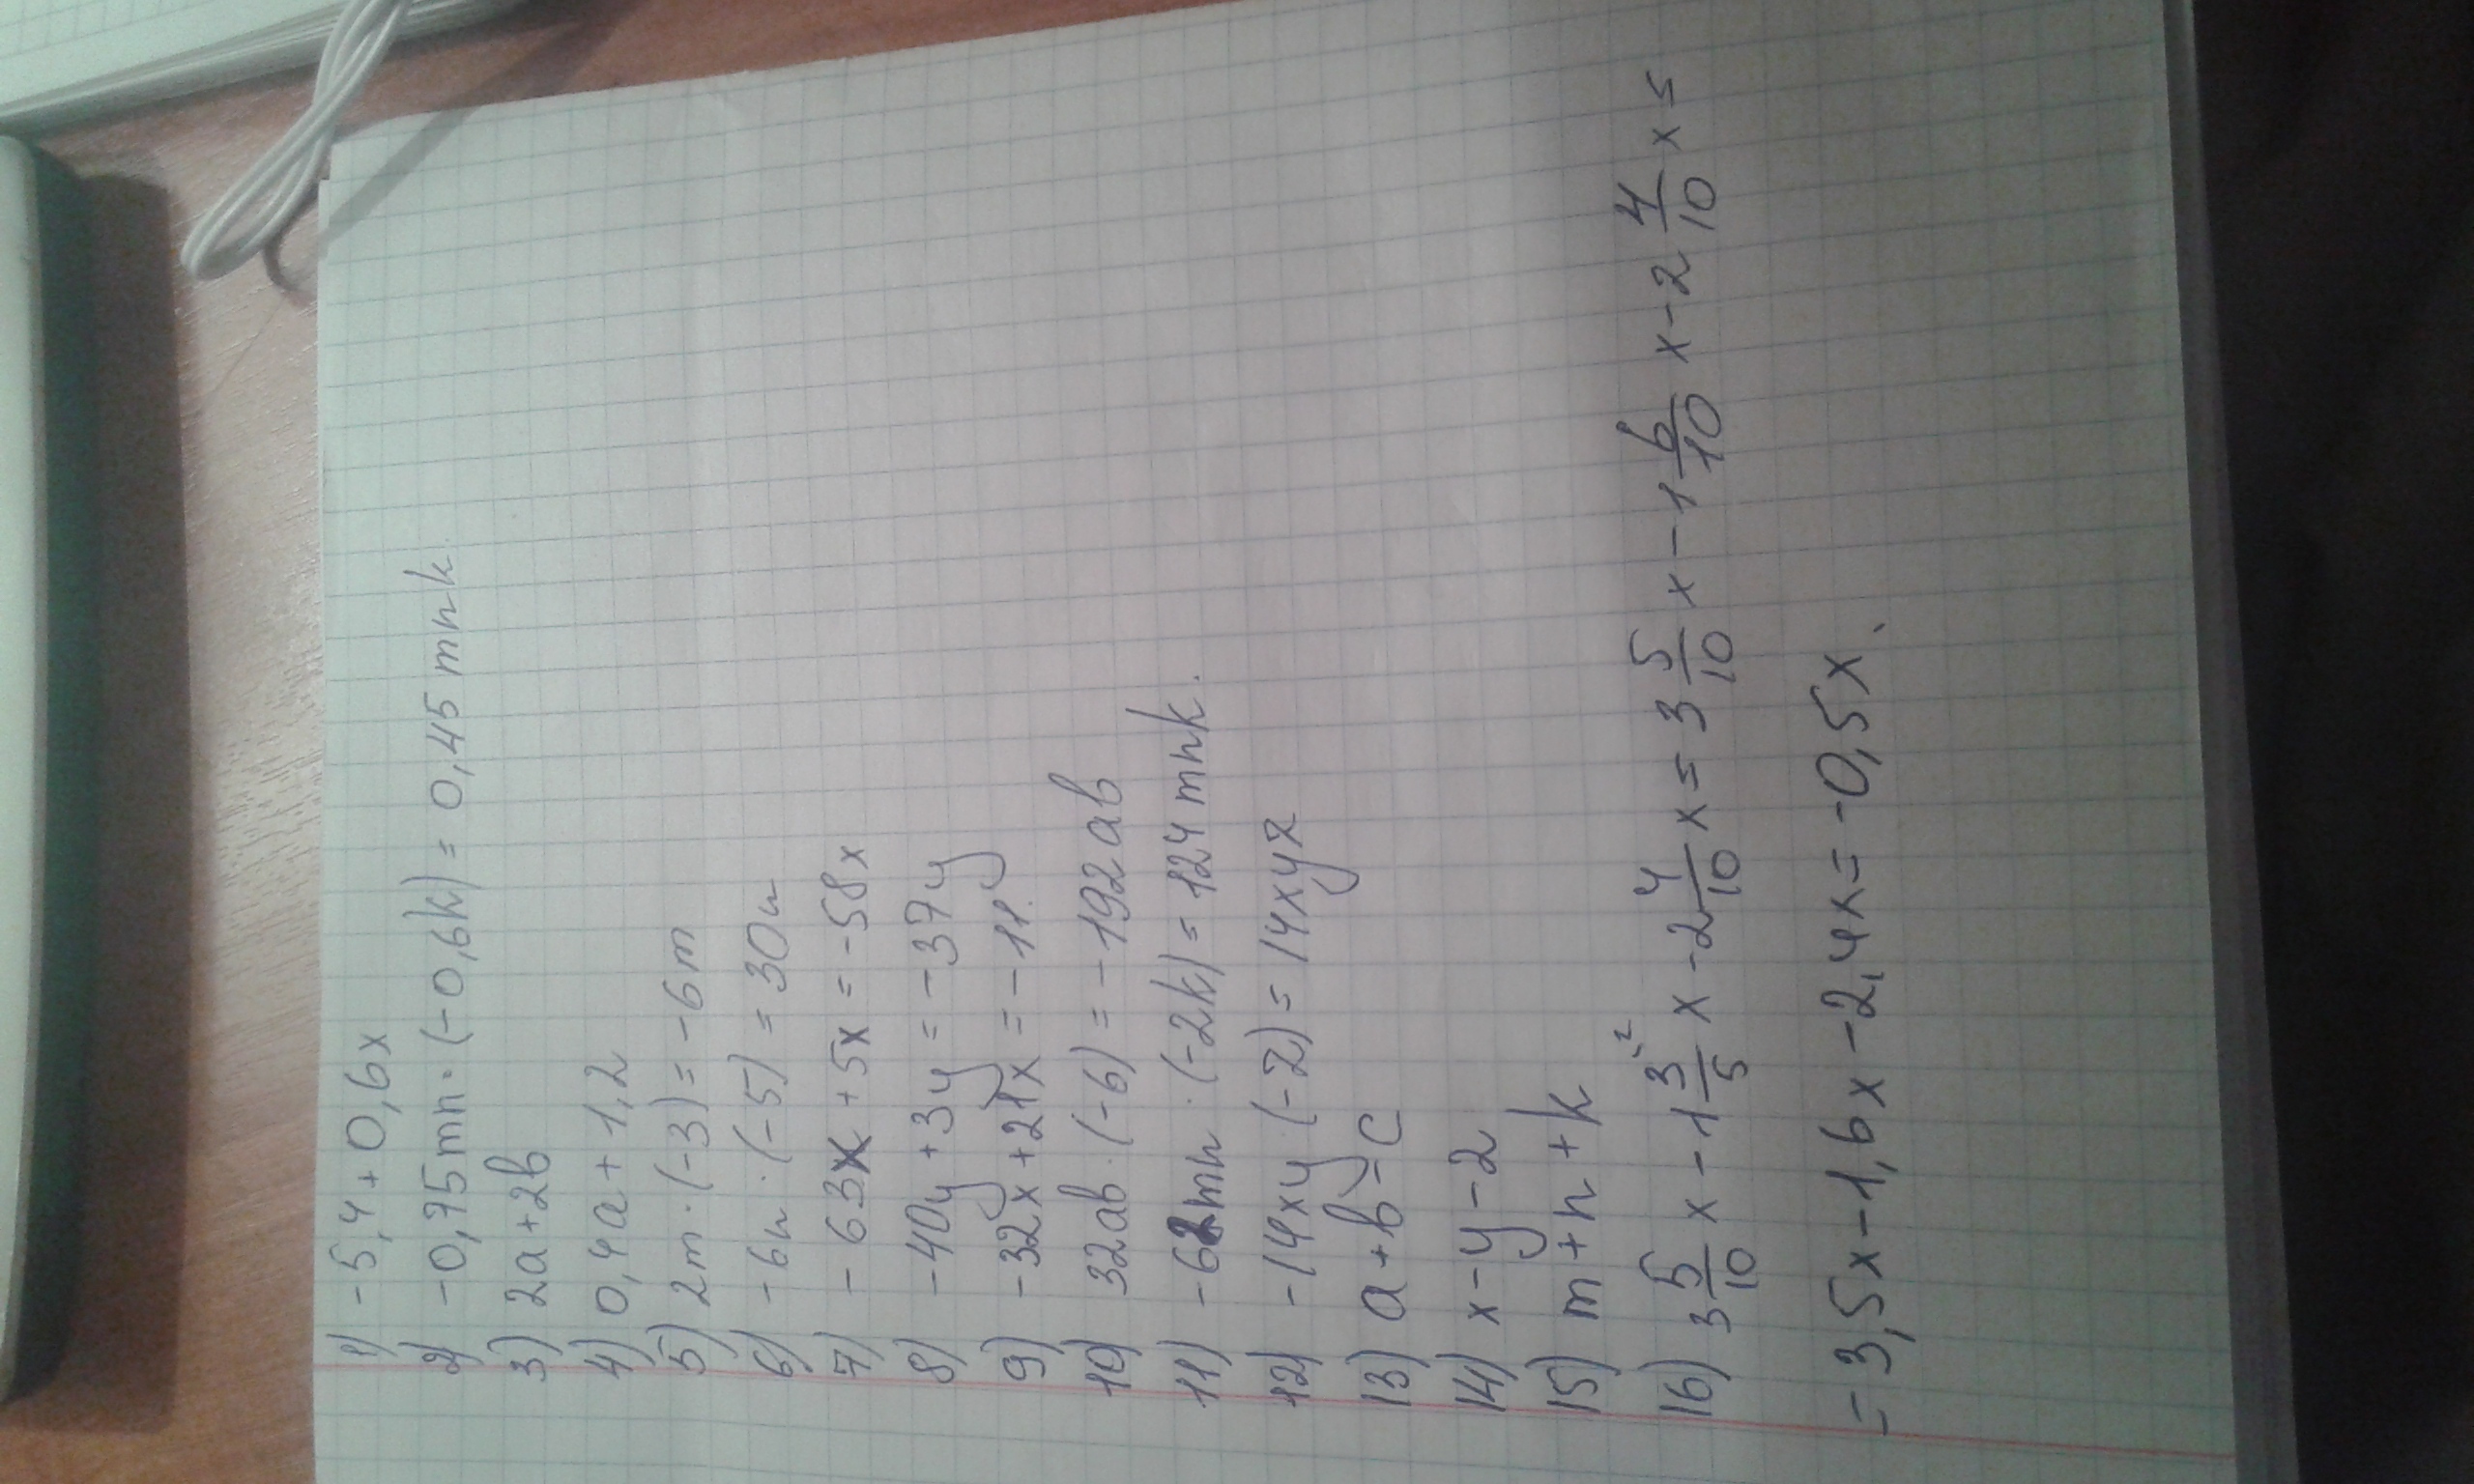 1) -5,4+0,6x
2) -0,75mn·(-0,6k)=0,45mnk.
3) 2a+2b
4) 0,4a+1,2
5) 2m·(-3)=-6m
6) -6n·(-5)=30n
7) -63x+5x=-58x
8) -40y+3y=-37y
9) -32x+21x=-11.
10) 32ab·(-6)=-192ab
11) -62mn·(-2k)=124mnk.
12) -14xy·(-z)=14xyz
13) a+b-c
14) x-y-2
15) m+n+k
16) 3 5/10 x - 1 3/5 \2 x - 2 4/10 x = 3 5/10 x - 1 6/10 x - 2 4/10 x =
= 3,5x-1,6x-2,4x=-0,5x.